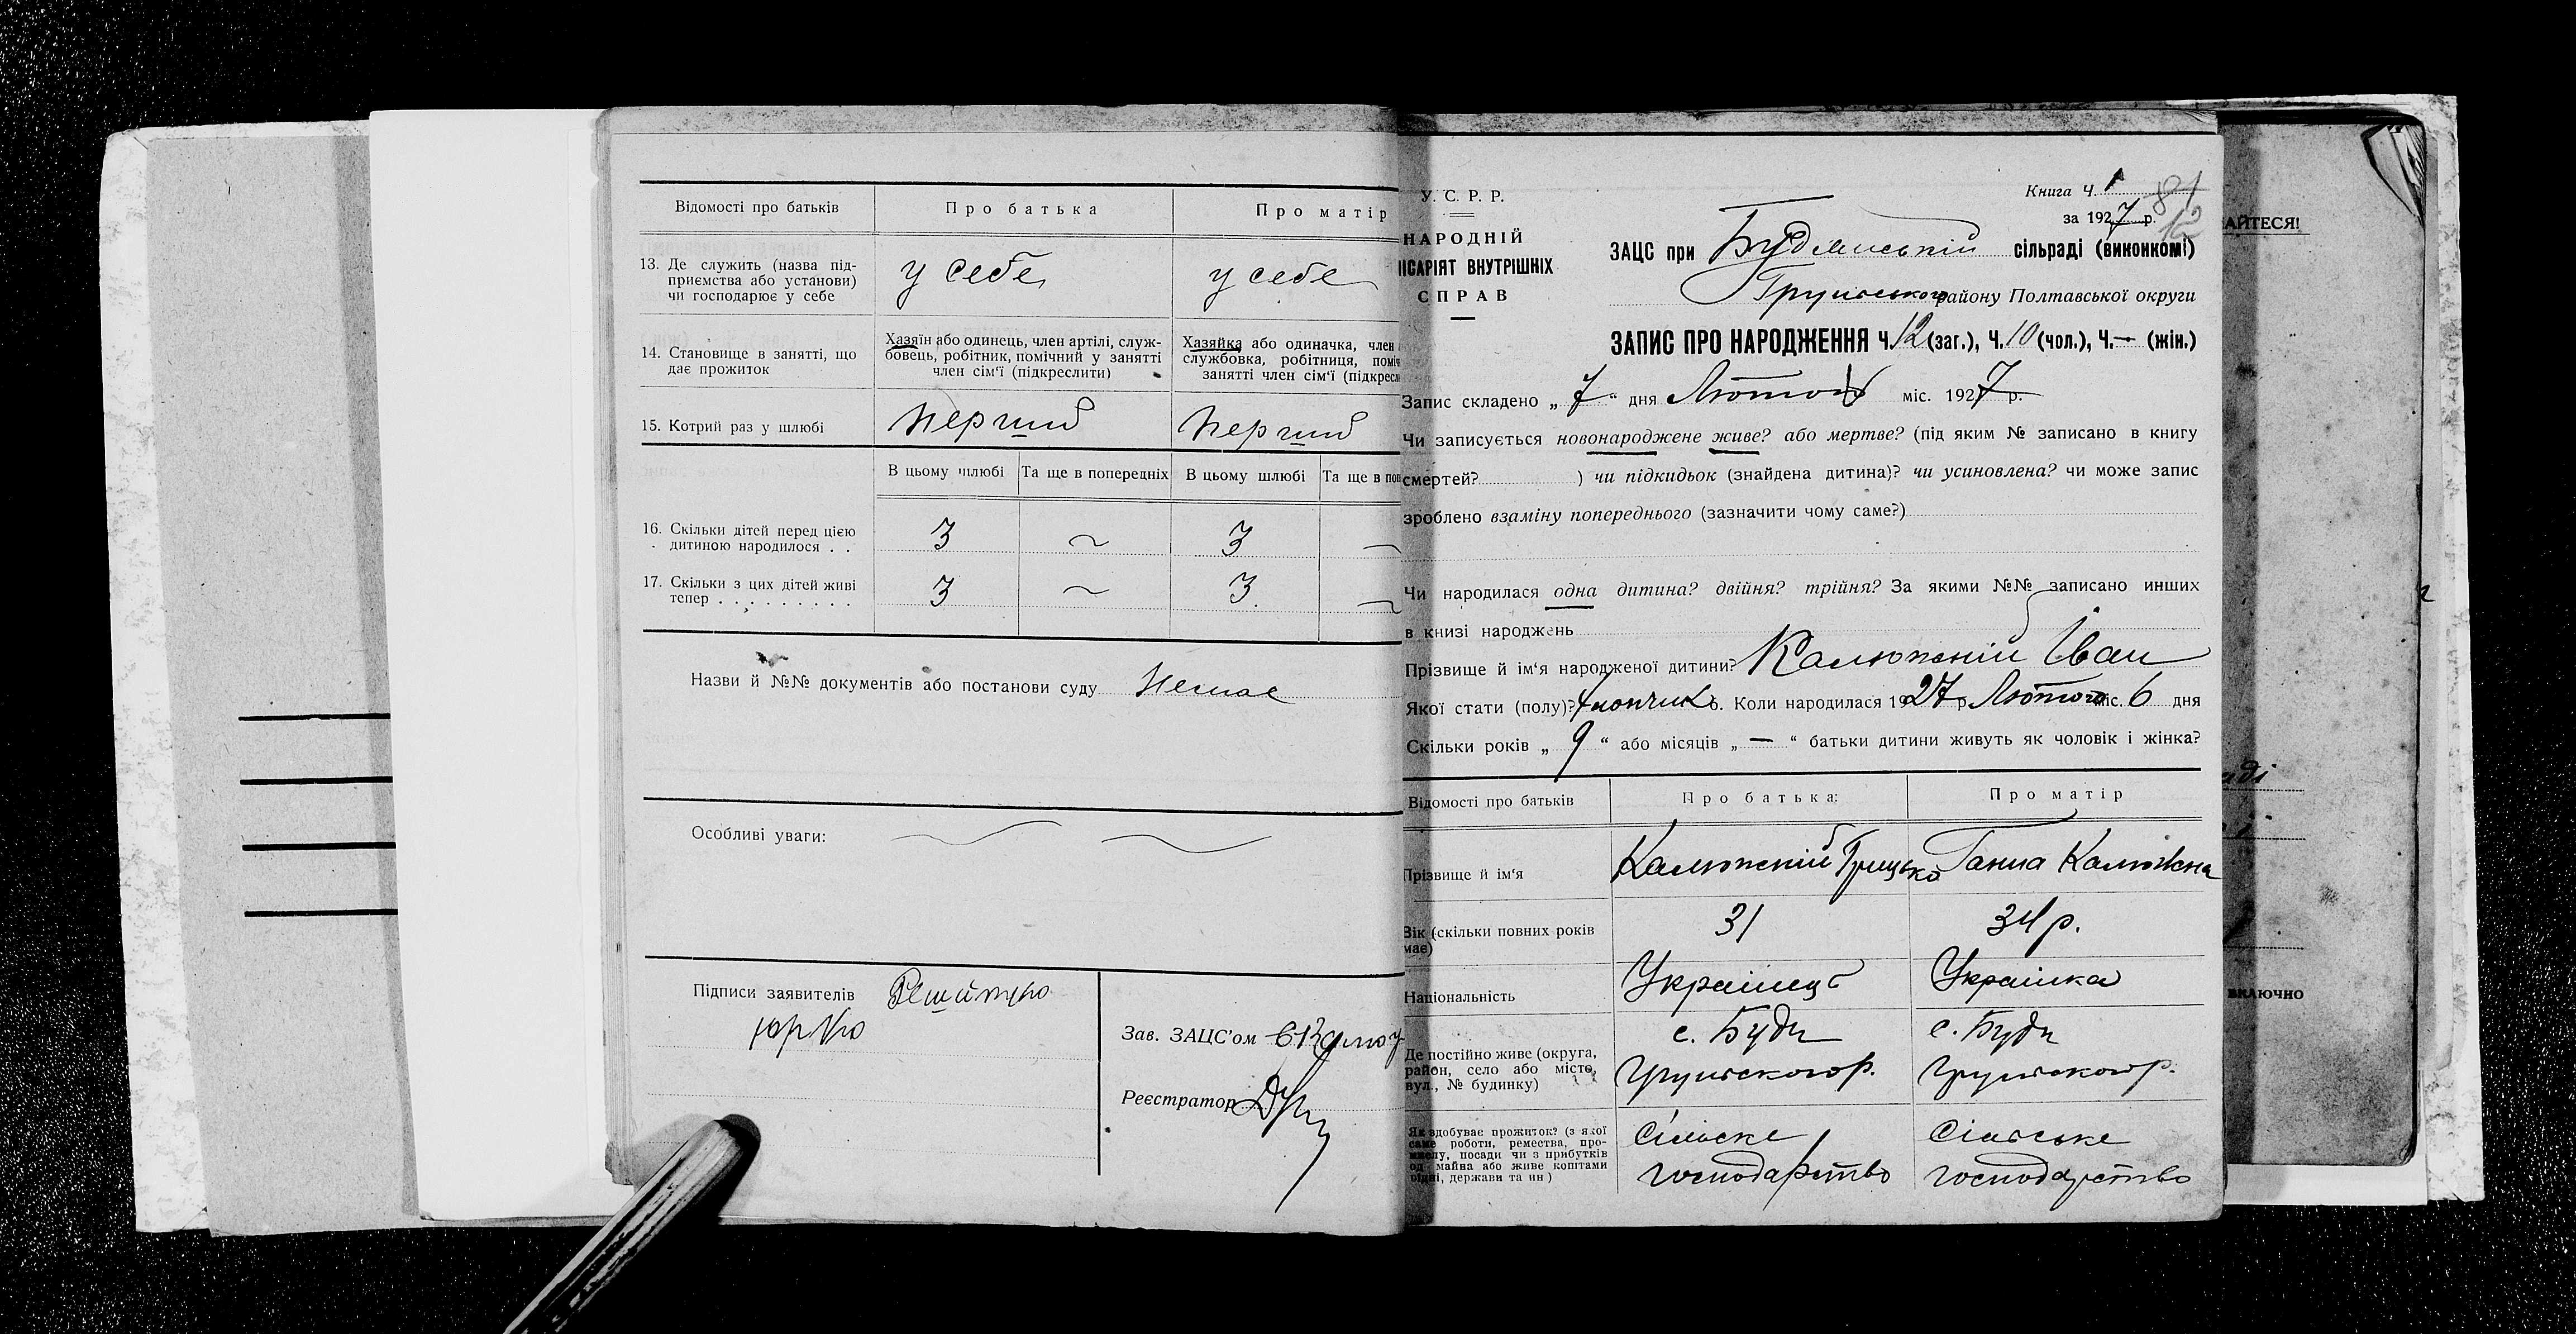 Відомості про батьків
Про батька
Про матір
13. Де служить (назва під-
приємства або установи)
чи господарює у себе
у себе
у себе
14. Становище в занятті, що
дає прожиток
Хазяїн або одинець, член артілі, служ-
бовець, робітник, помічний у занятті
член сім'ї (підкреслити)
Хазяйка або одиначка, член
службовка, робітниця, поміч
занятті член сім'ї (підкресл
15. Котрий раз у шлюбі
перший
перший
В цьому шлюбі
Та ще в попередніх
В цьому шлюбі
Та ще в поп
16. Скільки дітей перед цією
дитиною народилося . .
3
~
3
—
17. Скільки з цих дітей живі
тепер . . . . . . . . .
3
~
3.
~
Назви й №№ документів або постанови суду Немає
Особливі уваги:
Підписи заявителів
Зав. ЗАЦС'ом
Реєстратор
У. С. Р. Р.
НАРОДНІЙ
ІСАРІЯТ ВНУТРІШНІХ
СПРАВ
Книга Ч. 1
81
за 1927 р.
12
ЗАЦС при Будянській сільраді (виконкомі)
Грунського району Полтавської округи
ЗАПИС ПРО НАРОДЖЕННЯ Ч. 12 (заг.), Ч. 10 (чол.), Ч. — (жін.)
Запис складено „ 7 “ дня Лютого міс. 1927 р.
Чи записується новонароджене живе? або мертве? (під яким № записано в книгу
смертей? ) чи підкидьок (знайдена дитина)? чи усиновлена? чи може запис
зроблено взаміну попереднього (зазначити чому саме?)
Чи народилася одна дитина? двійня? трійня? За якими №№ записано инших
в книзі народжень
Прізвище й ім'я народженої дитини? Калюжній Іван
Якої стати (полу)? хлопчик. Коли народилася 1927 р. Лютого міс. 6 дня
Скільки років „ 9 “ або місяців „ — “ батьки дитини живуть як чоловік і жінка?
Відомості про батьків
Про батька:
Про матір
Прізвище й ім'я
Калюжній Грицько
Ганна Калюжна
Вік (скільки повних років
має)
31
34 р.
Національність
Українець
Українка
Де постійно живе (округа,
район, село або місто,
вул., № будинку)
с. Буди
Грунського р.
с. Буди
Грунського р.
Як здобуває прожиток? (з якої
саме роботи, ремества, про-
мислу, посади чи з прибутків
од майна або живе коштами
рідні, держави та ин)
Сільске
господарство
Сільське
господарство
АЙТЕСЯ!
аді
включно